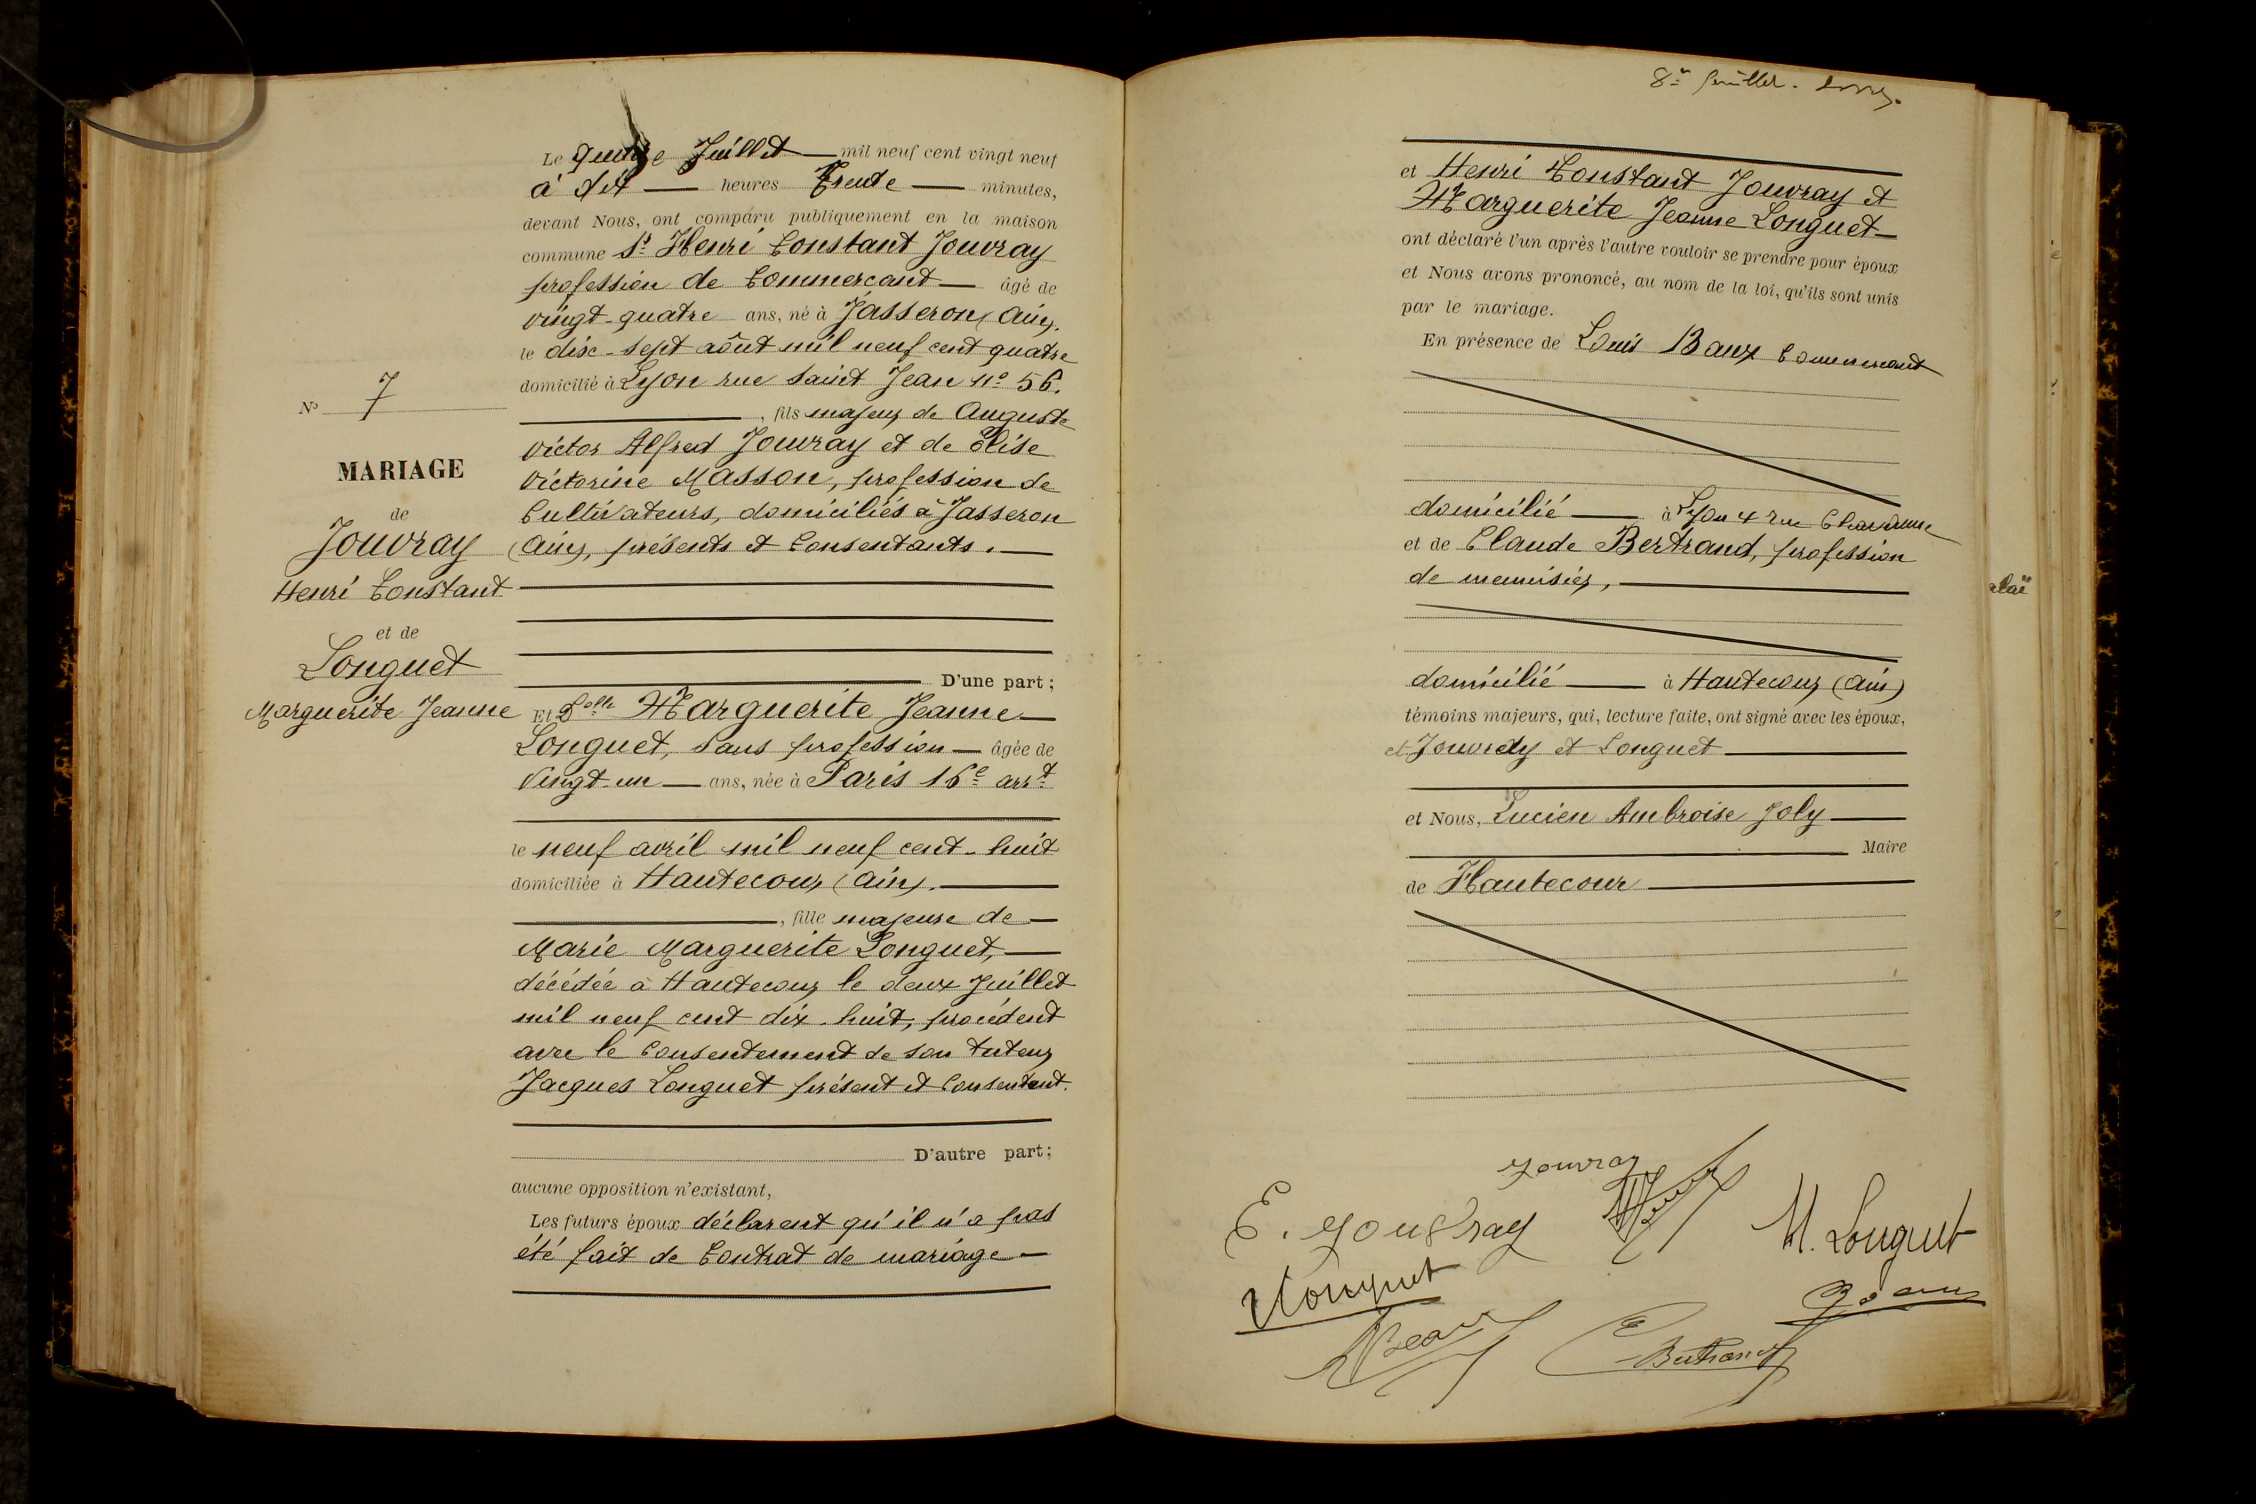 Le quinze Juillet mil neuf cent vingt neuf
à dix heures Trente minutes,
devant Nous, ont comparu publiquement en la maison
commune Sr Henri Constant Jouvray
profession de Commerçant âgé de
vingt-quatre ans, né à Jasseron (Ain).
le dix-sept août mil neuf cent quatre
domicilié à Lyon rue Saint Jean no 56.
, fils majeur de Auguste
Victor Alfred Jouvray et de Elise
Victorine Masson, profession de
Cultivateurs, domiciliés à Jasseron
(Ain), présents et Consentants.
D'une part;
Et Delle Marguerite Jeanne
Longuet, sans profession âgée de
Vingt-un ans, née à Paris 16e arrt
le neuf avril mil neuf cent-huit
domiciliée à Hautecour (Ain).
, fille majeure de
Marie Marguerite Longuet,
décédée à Hautecour le deux Juillet
mil neuf cent dix-huit, procédent
avec le Consentement de son tuteur
Jacques Longuet présent et Consentent.
D'autre part;
aucune opposition n'existant,
Les futurs époux déclarent qu'il n'a pas
été fait de Contrat de mariage
No 7
MARIAGE
de
Jouvray
Henri Constant
et de
Longuet
Marguerite Jeanne
8e feuillet.
et Henri Constant Jouvray et
Marguerite Jeanne Longuet
ont déclaré l'un après l'autre vouloir se prendre pour époux
et Nous avons prononcé, au nom de la loi, qu'ils sont unis
par le mariage.
En présence de Louis Baux Commercant
domicilié à Lyon 4 rue Chavanne
et de Claude Bertrand, profession
de menuisier,
domicilié à Hautecour (Ain)
témoins majeurs, qui, lecture faite, ont signé avec les époux,
et Jouvray et Longuet
et Nous, Lucien Ambroise Joly
Maire
de Hautecour
Jouvray
E. Jouvray
M. Longuet
Longuet
Bertrand